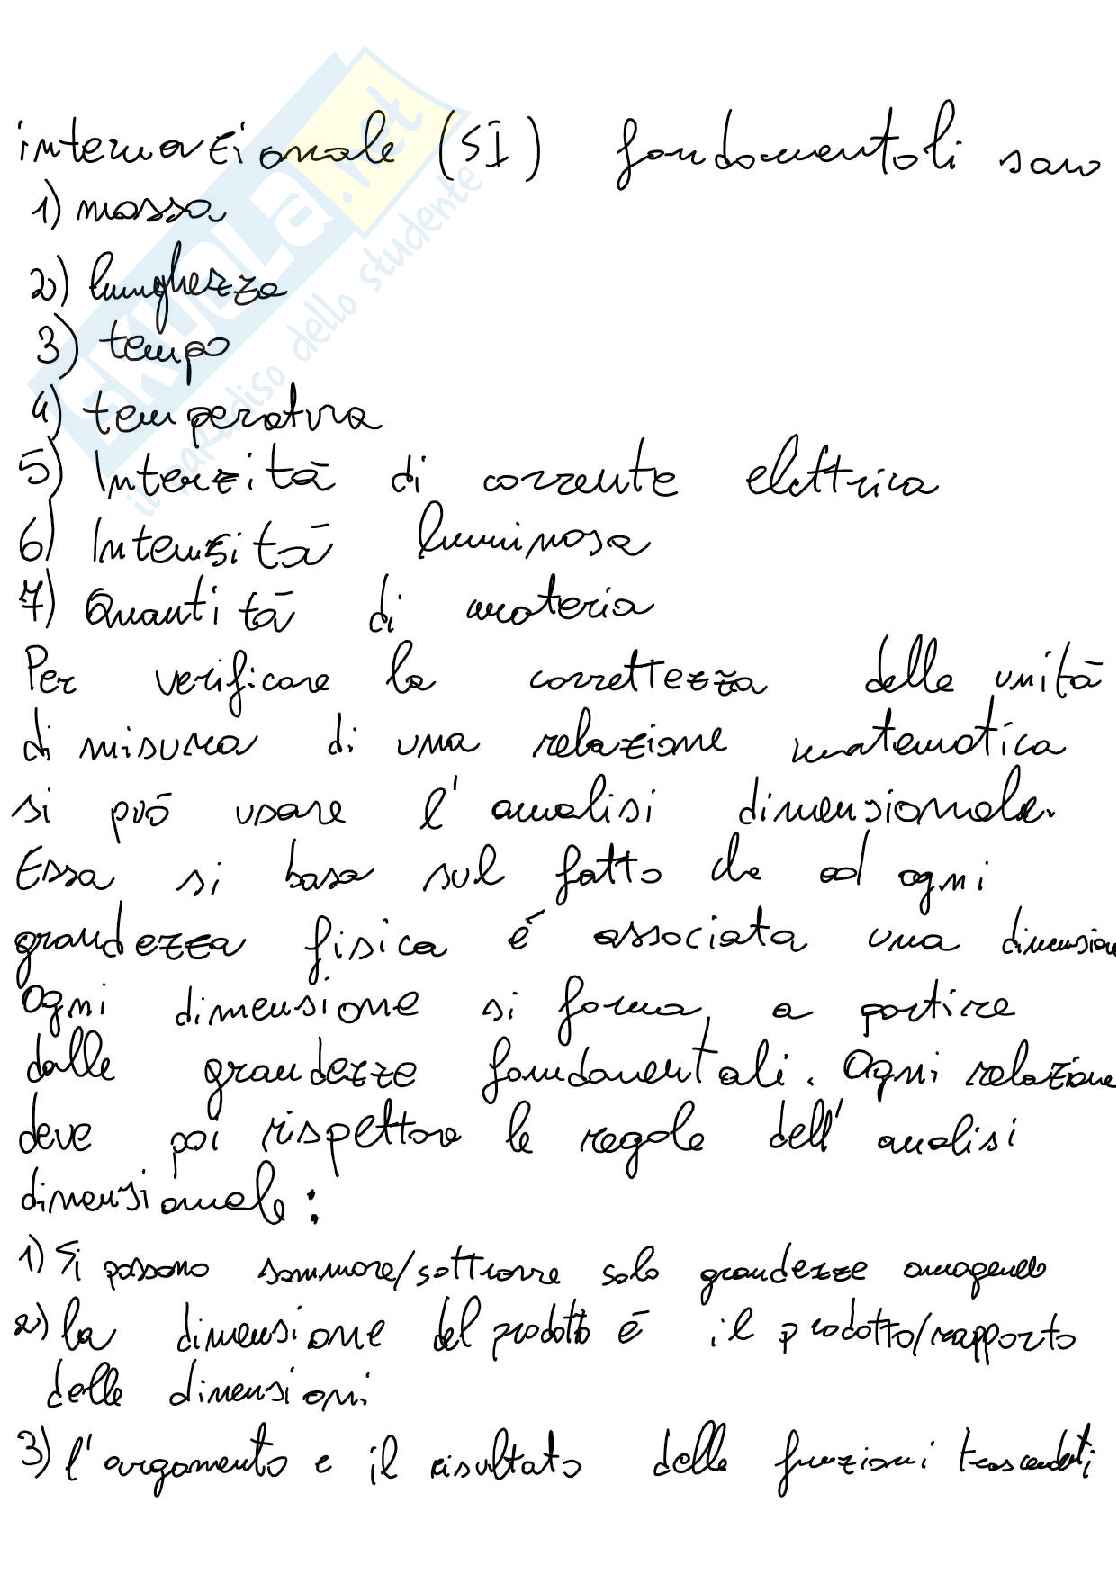 internazionale (SI) fondamentali sano
1) massa
2) lunghezza
3) tempo
4) temperatura
5) Intenzità di corrente elettrica
6) Intensità luminosa
7) Quantità di materia
Per verificare la correttezza delle unità
di misura di una relazione matematica
si può usare l'analisi dimensionale.
Essa si basa sul fatto che ad ogni
grandezza fisica é associata una dimension
Ogni dimensione si forma, a partire
dalle grandezze fondamentali. Ogni relazione
deve poi rispettare le regole dell'analisi
dimensionale:
1) Si possono sommare/sottrarre solo grandezze omogenee
2) la dimensione del prodotto é il prodotto/rapporto
delle dimensioni
3) l'argomento e il risultato delle funzioni trascendenti
SKUOLA.net
il paradiso dello studente